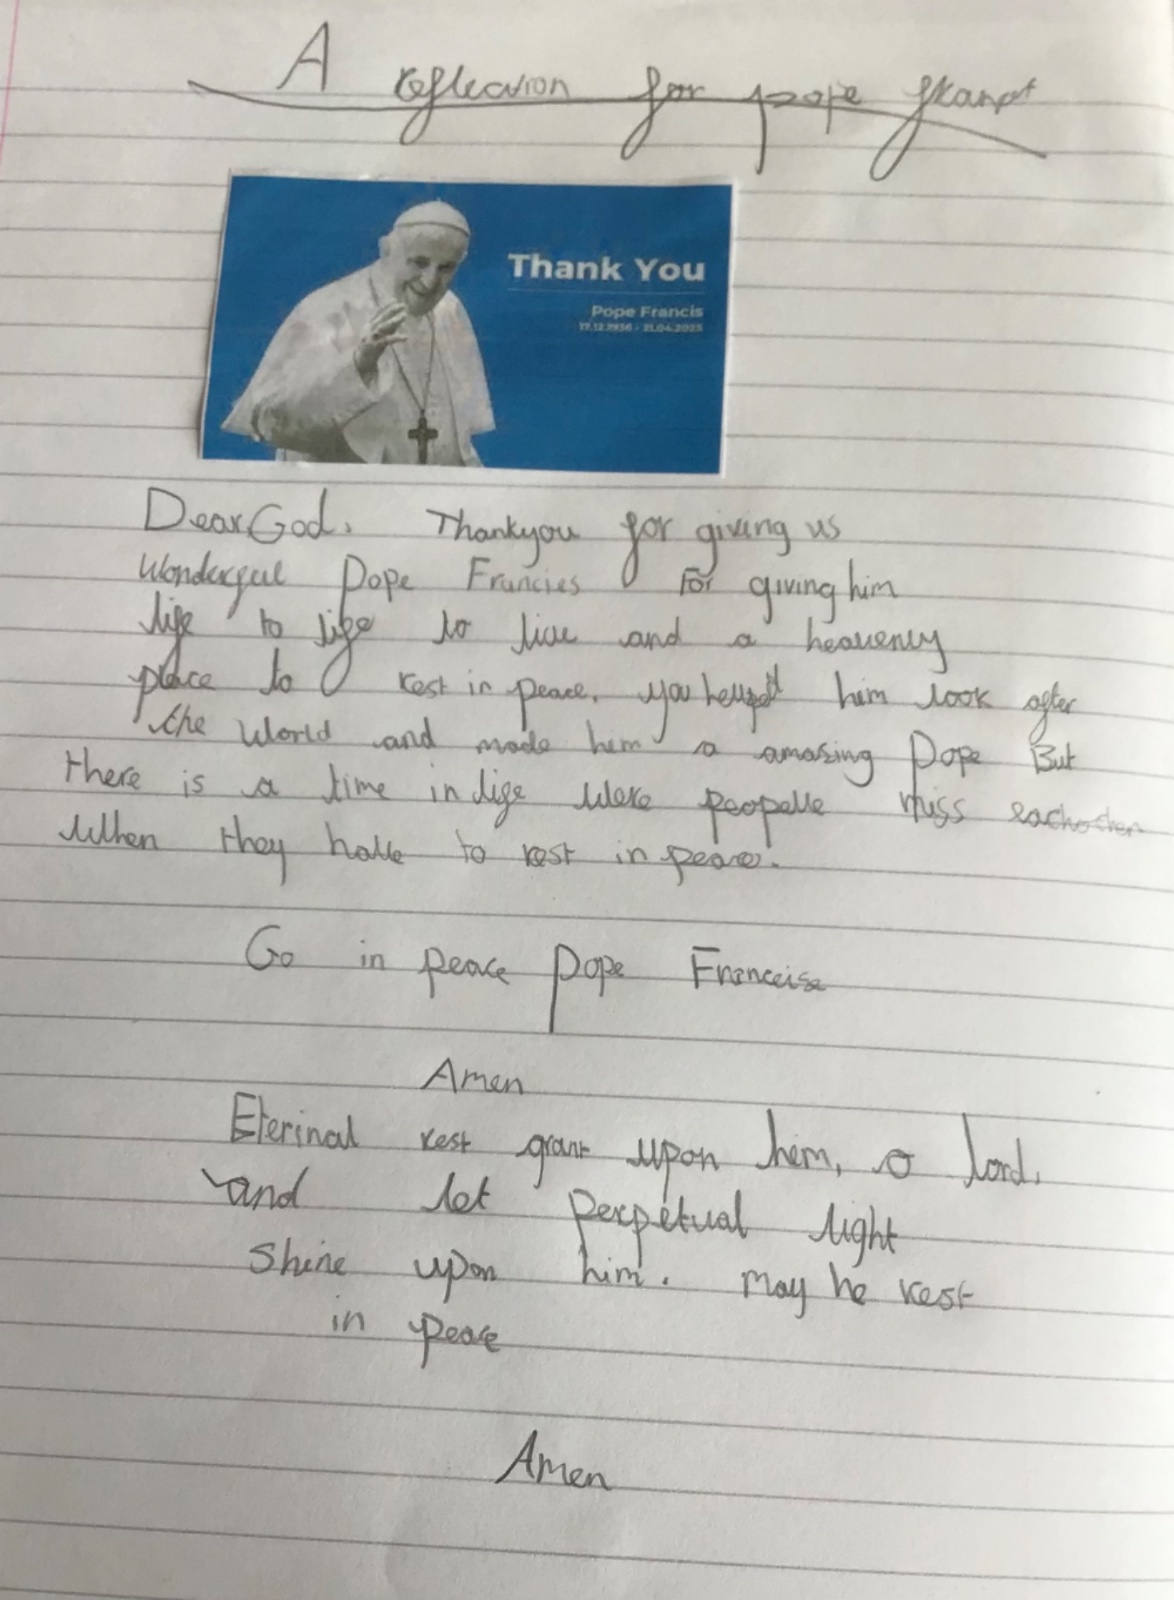 A reflection for pope
Thank You
Pope Francis
17.12.1936 - 21.04.2025
Dear God. Thankyou for giving us
Wonderful Pope Francies For giving him
life to life to live and a heavenly
place to rest in peace. you him look after
the World and made him a amazing Pope But
there is a time in life were peopelle miss eachother
When they have to rest in peace.
Go in peace Pope Franceise
Amen
Eterinal rest grant upon him, o lord.
and let perpetual light
Shine upon him. May he rest
in peace
Amen